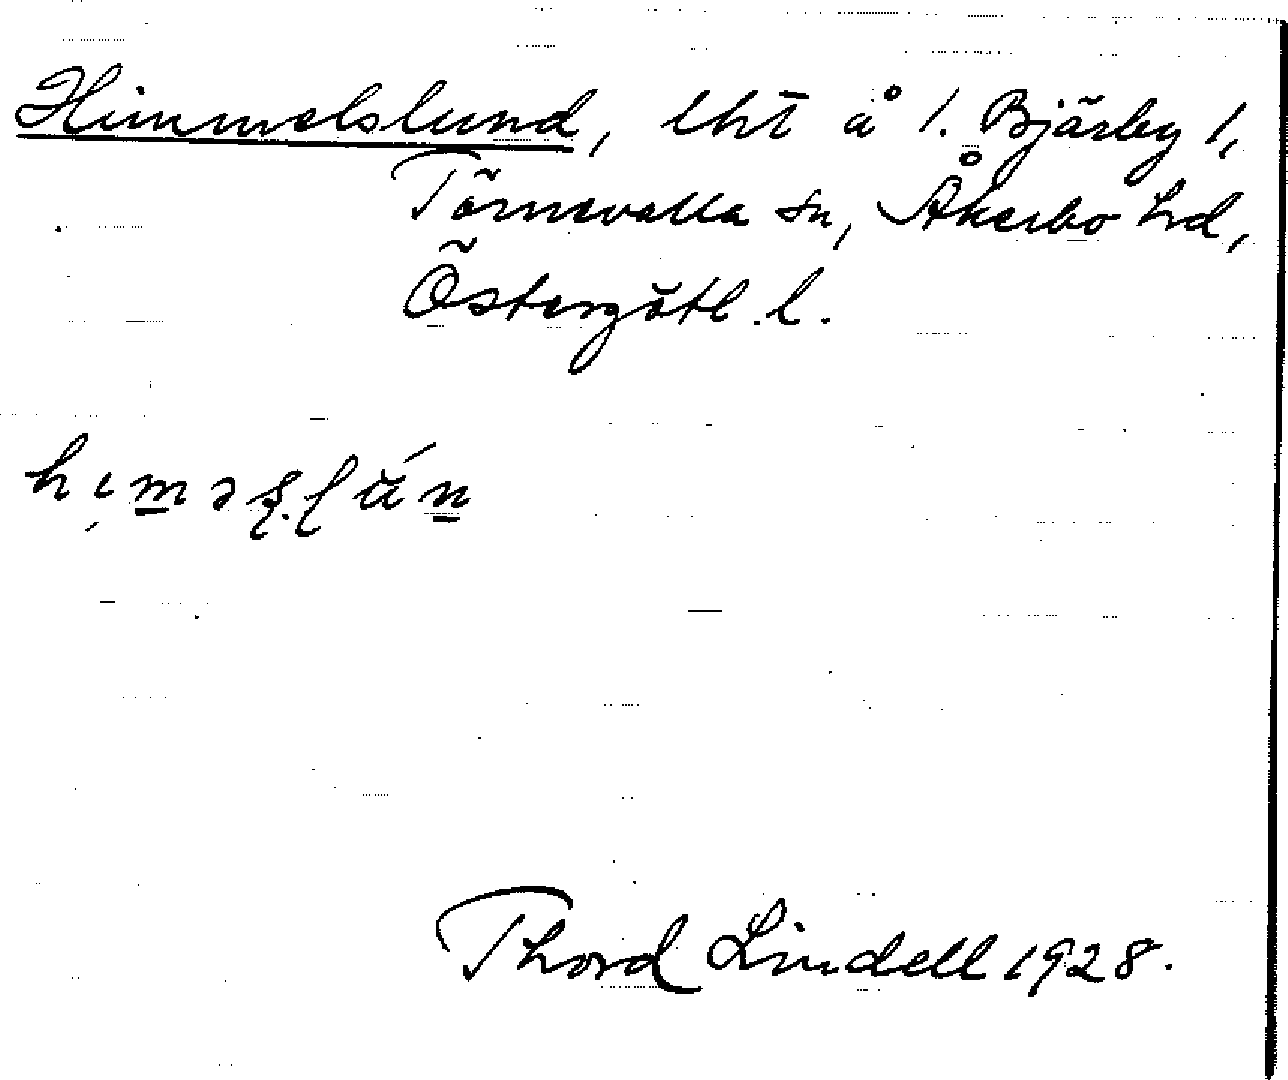 Himmelslund, lht å 1. Bjärby 1,
Törnevalla sn, Åkerbo hd,
Östergötl. l.
Thord Lindell 1928.